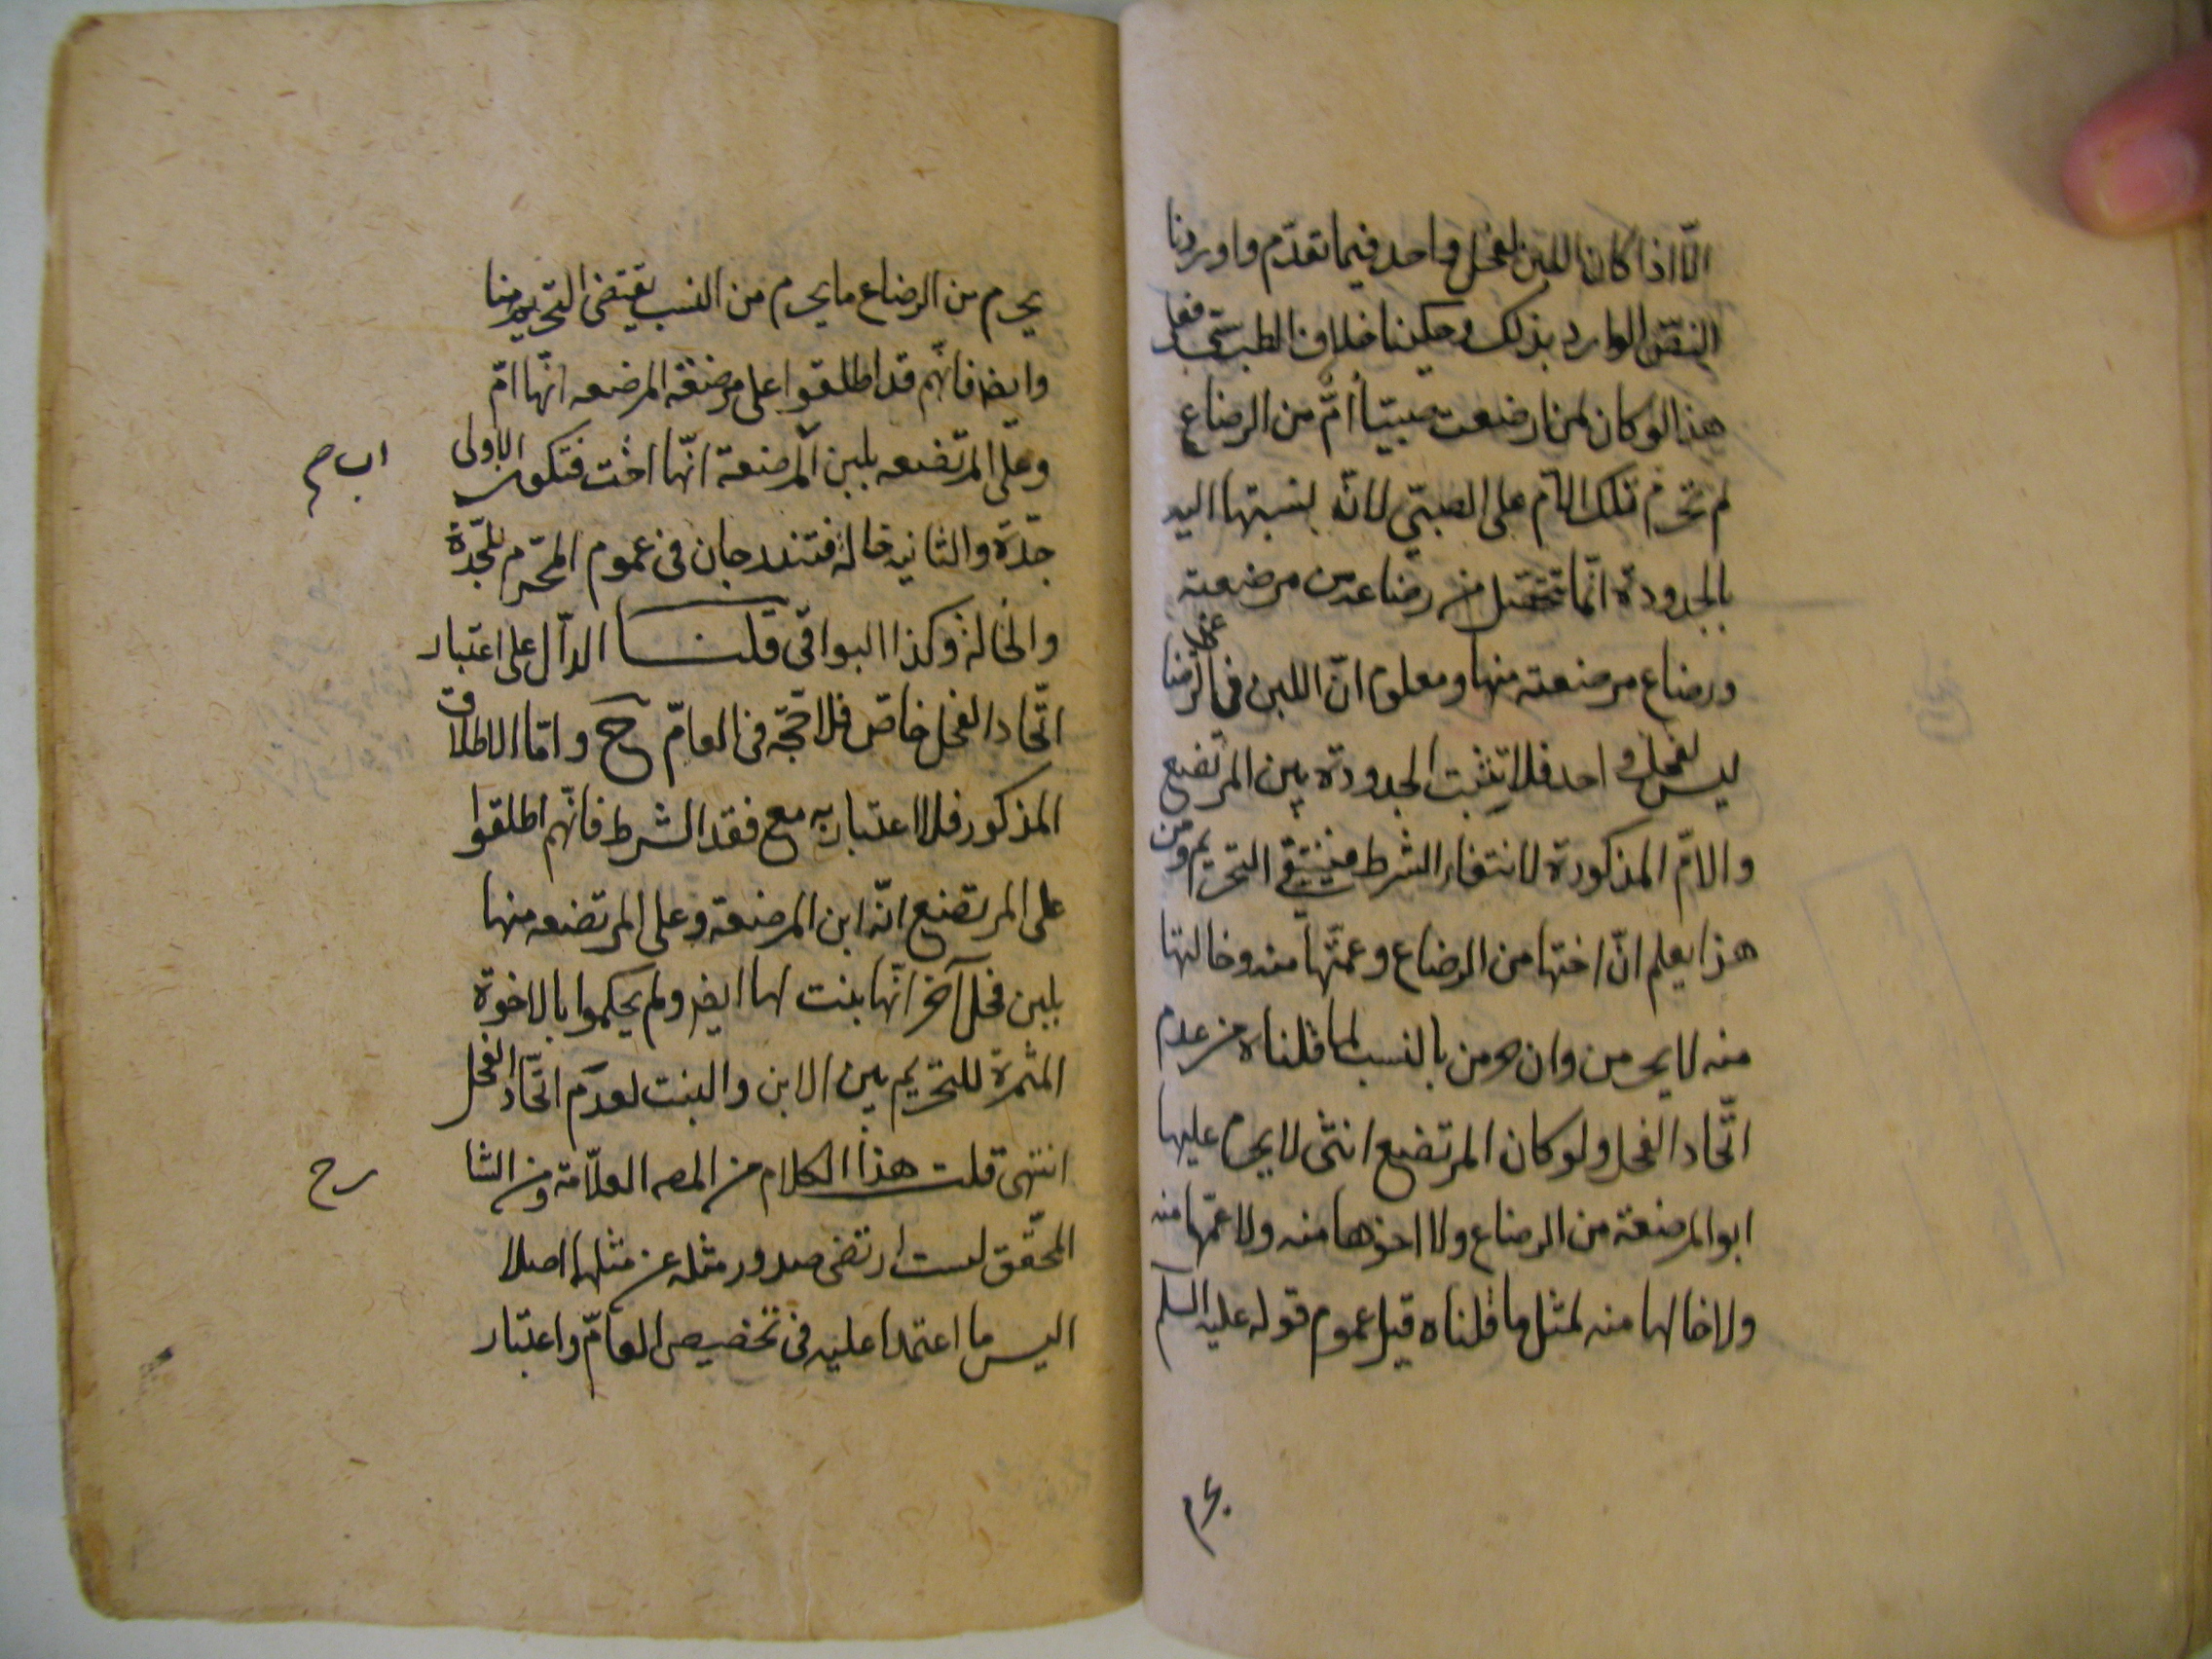 الّا اذا كان اللبن لفحل واحد فيما تقدّم واوردنا
النصّ الوارد بذلك وحكينا خلاف الطبرسي فعلى
هذا لو كان لمن ارضعت صبيّا أمّ من الرضاع
لم تحرم تلك الامّ على الصبيّ لانّ نسبتها اليه
بالجدودة انّما تتحصّل من رضاعه من مرضعته
ورضاع مرضعته منها ومعلوم انّ اللبن في الرضاعين
ليس لفحل واحد فلا تثبت الجدودة بين المرتضع
والامّ المذكورة لانتفاء الشرط فينتفي التحريم ومن
هذا يعلم انّ اختها من الرضاع وعمّتها منه وخالتها
منه لا يحرمن وان حرمن بالنسب لما قلناه من عدم
اتّحاد الفحل ولو كان المرتضع انثى لا يحرم عليها
ابو المرضعة من الرضاع ولا اخوها منه ولا عمّها منه
ولا خالها منه لمثل ما قلناه قيل عموم قوله عليه السلم
يحرم
يحرم من الرضاع ما يحرم من النسب يقتضى التحريم هنا
وايضا فانّهم قد اطلقوا على مرضعة المرضعه انّها امّ
وعلى المرتضعه بلبن المرضعة انّها اخت فتكون الاولى
جدّة والثانيه خالة فتندرجان فى عموم المحرّم للجدّة
والخالة وكذا البواقى قلنا الدالّ على اعتبار
اتّحاد الفحل خاصّ فلا حجّة فى العامّ ح‍ح وامّا الاطلاق
المذكور فلا اعتبار به مع فقد الشرط فانّهم اطلقوا
على المرتضع انّه ابن المرضعة وعلى المرتضعه منها
بلبن فحل آخر انّها بنت لها ايضا ولم يحكموا بالاخوة
المثمرة للتحريم بين الابن والبنت لعدم اتّحاد الفحل
انتهى قلت هذا الكلام من المص العلّامة ومن الشا
المحقّق لست ارتضى صدور مثله عن مثلهما اصلا
اليس ما اعتمدا عليه فى تخصيص العامّ واعتبار